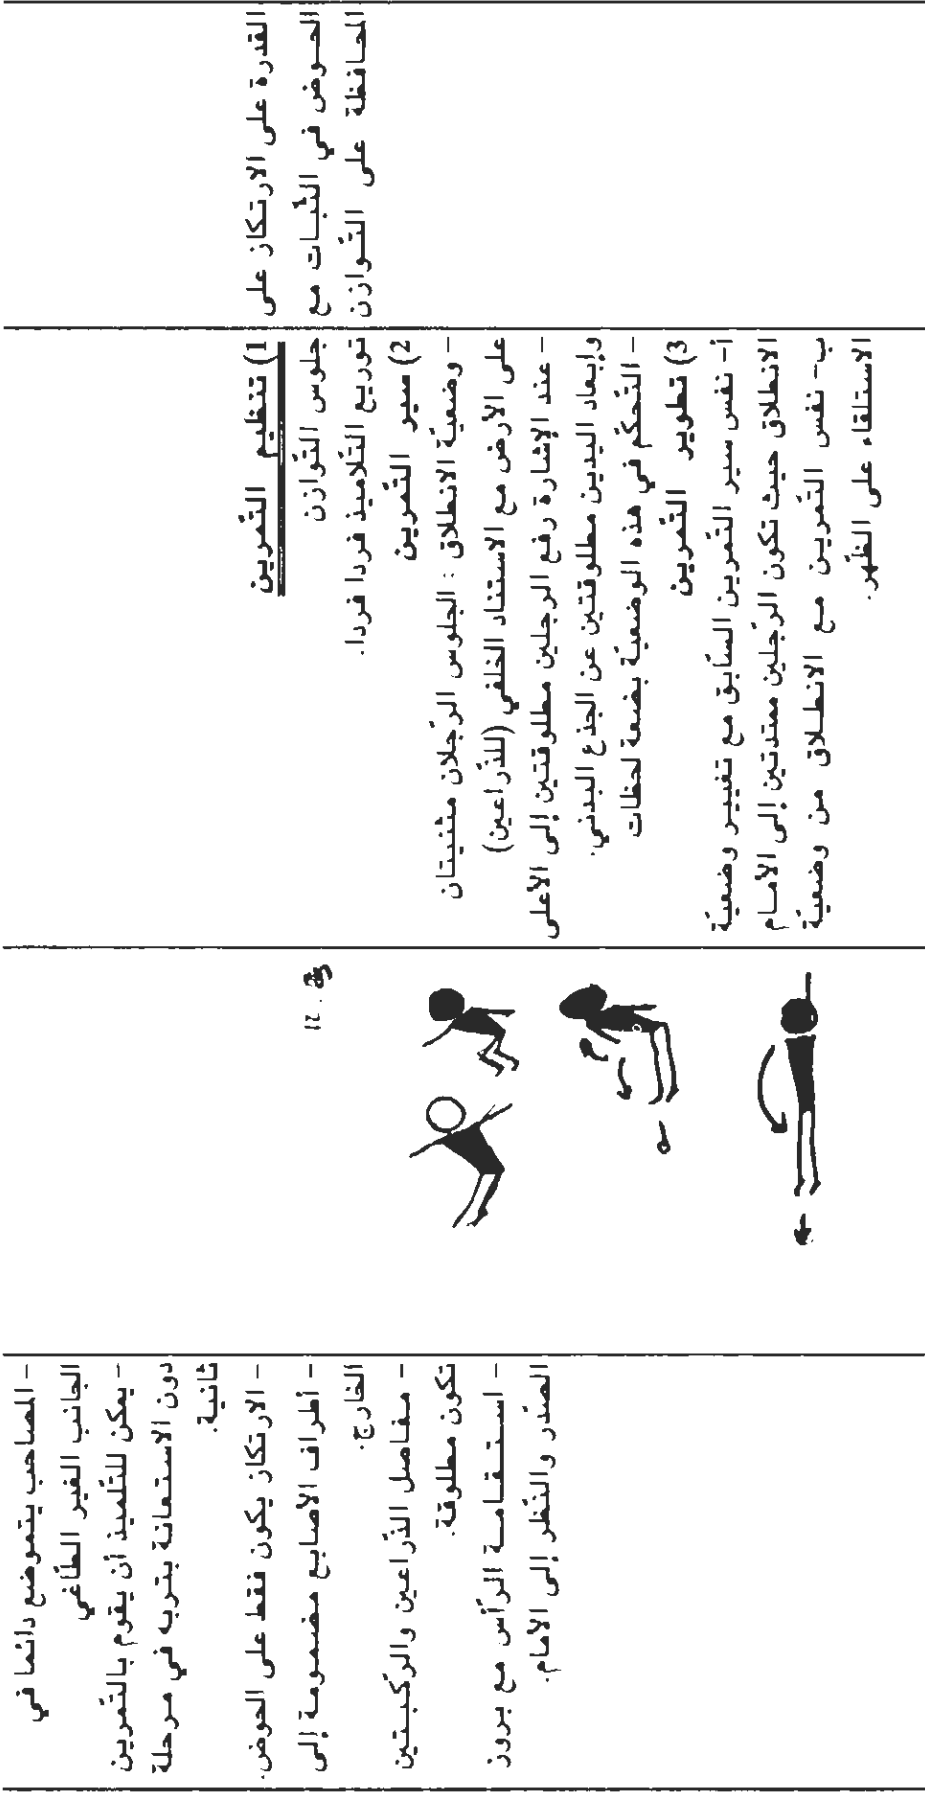 القدرة على الارتكاز على
الحوض في الثبات مع
المحافظة على التّوازن
1) تنظيم التّمرين
جلوس التّوازن
توزيع التّلاميذ فردا فردا.
2) سير التّمرين
- وضعيّة الانطلاق : الجلوس الرّجلان مثنيتان
على الأرض مع الاستناد الخلفي (للذّراعين)
- عند الإشارة رفع الرجلين مطلوقتين إلى الأعلى
وإبعاد اليدين مطلوقتين عن الجذع البدني.
- التّحكّم في هذه الوضعيّة بضعة لحظات
3) تطوير التّمرين
أ- نفس سير التّمرين السّابق مع تغيير وضعيّة
الانطلاق حيث تكون الرّجلين ممتدتين إلى الأمام
ب- نفس التّمرين مع الانطلاق من وضعيّة
الاستلقاء على الظّهر.
- المصاحب يتموضع دائما في
الجانب الغير الطّاغي
- يمكن للتّلميذ أن يقوم بالتّمرين
دون الاستعانة بتربه في مرحلة
ثانية.
- الارتكاز يكون فقط على الحوض.
- أطراف الأصابع مضمومة إلى
الخارج.
- مفاصل الذّراعين والركبتين
تكون مطلوقة.
- استقامة الرّأس مع بروز
الصّدر والنّظر إلى الأمام.